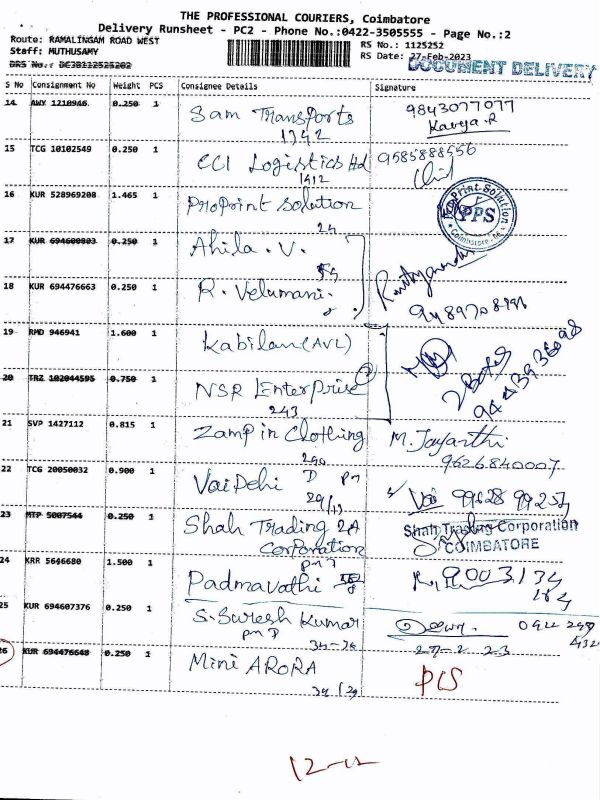 THE PROFESSIONAL COURIERS, Coimbatore
Delivery Runsheet - PC2 - Phone No.:0422-3505555 - Page No.:2
Route: RAMALINGAM ROAD WEST
RS No.: 1125252
Staff: MUTHUSAMY
RS Date: 27-Feb-2023
DRS No.: DC3B112525202
DOCUMENT DELIVERY
S No Consignment No Weight PCS Consignee Details Signature
14 AWY 1210946 0.250 1 Sam Transports 9843077077
1342 Kavya.R
15 TCG 10102549 0.250 1 CCI Logistics ltd 9585888556
1412
16 KUR 528969208 1.465 1 ProPrint Solution
24
ProPrint Solution
PPS
Coimbatore
17 KUR 694600803 0.250 1 Ahila . V.
18 KUR 694476663 0.250 1 R. Velumani.
19 RMD 946941 1.600 1 Kabilan (AVL)
20 TRZ 102044595 0.750 1 NSR Enterprise
243
21 SVP 1427112 0.815 1 Zamp in Clothing M. Jayarthi
290 9626840007
22 TCG 20050032 0.900 1 VaiDehi D Pn
29/13
23 MTP 5007544 0.250 1 Shah Trading 2A
Corporation
Shah Trading Corporation
COIMBATORE
24 KRR 5646680 1.500 1 Padmavathi
25 KUR 694607376 0.250 1 S. Suresh Kumar
27-2 23
26 KUR 694476648 0.250 1 Mini ARORA
34/29
PCS
12-12